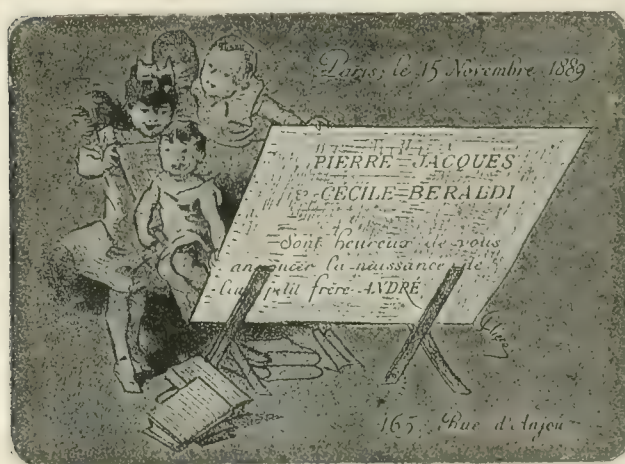 Paris, le 15 Novembre 1889
PIERRE-JACQUES
& CÉCILE-BERALDI
Sont heureux de vous
annoncer la naissance de
leur petit frère ANDRÉ
165, Rue d'Anjou